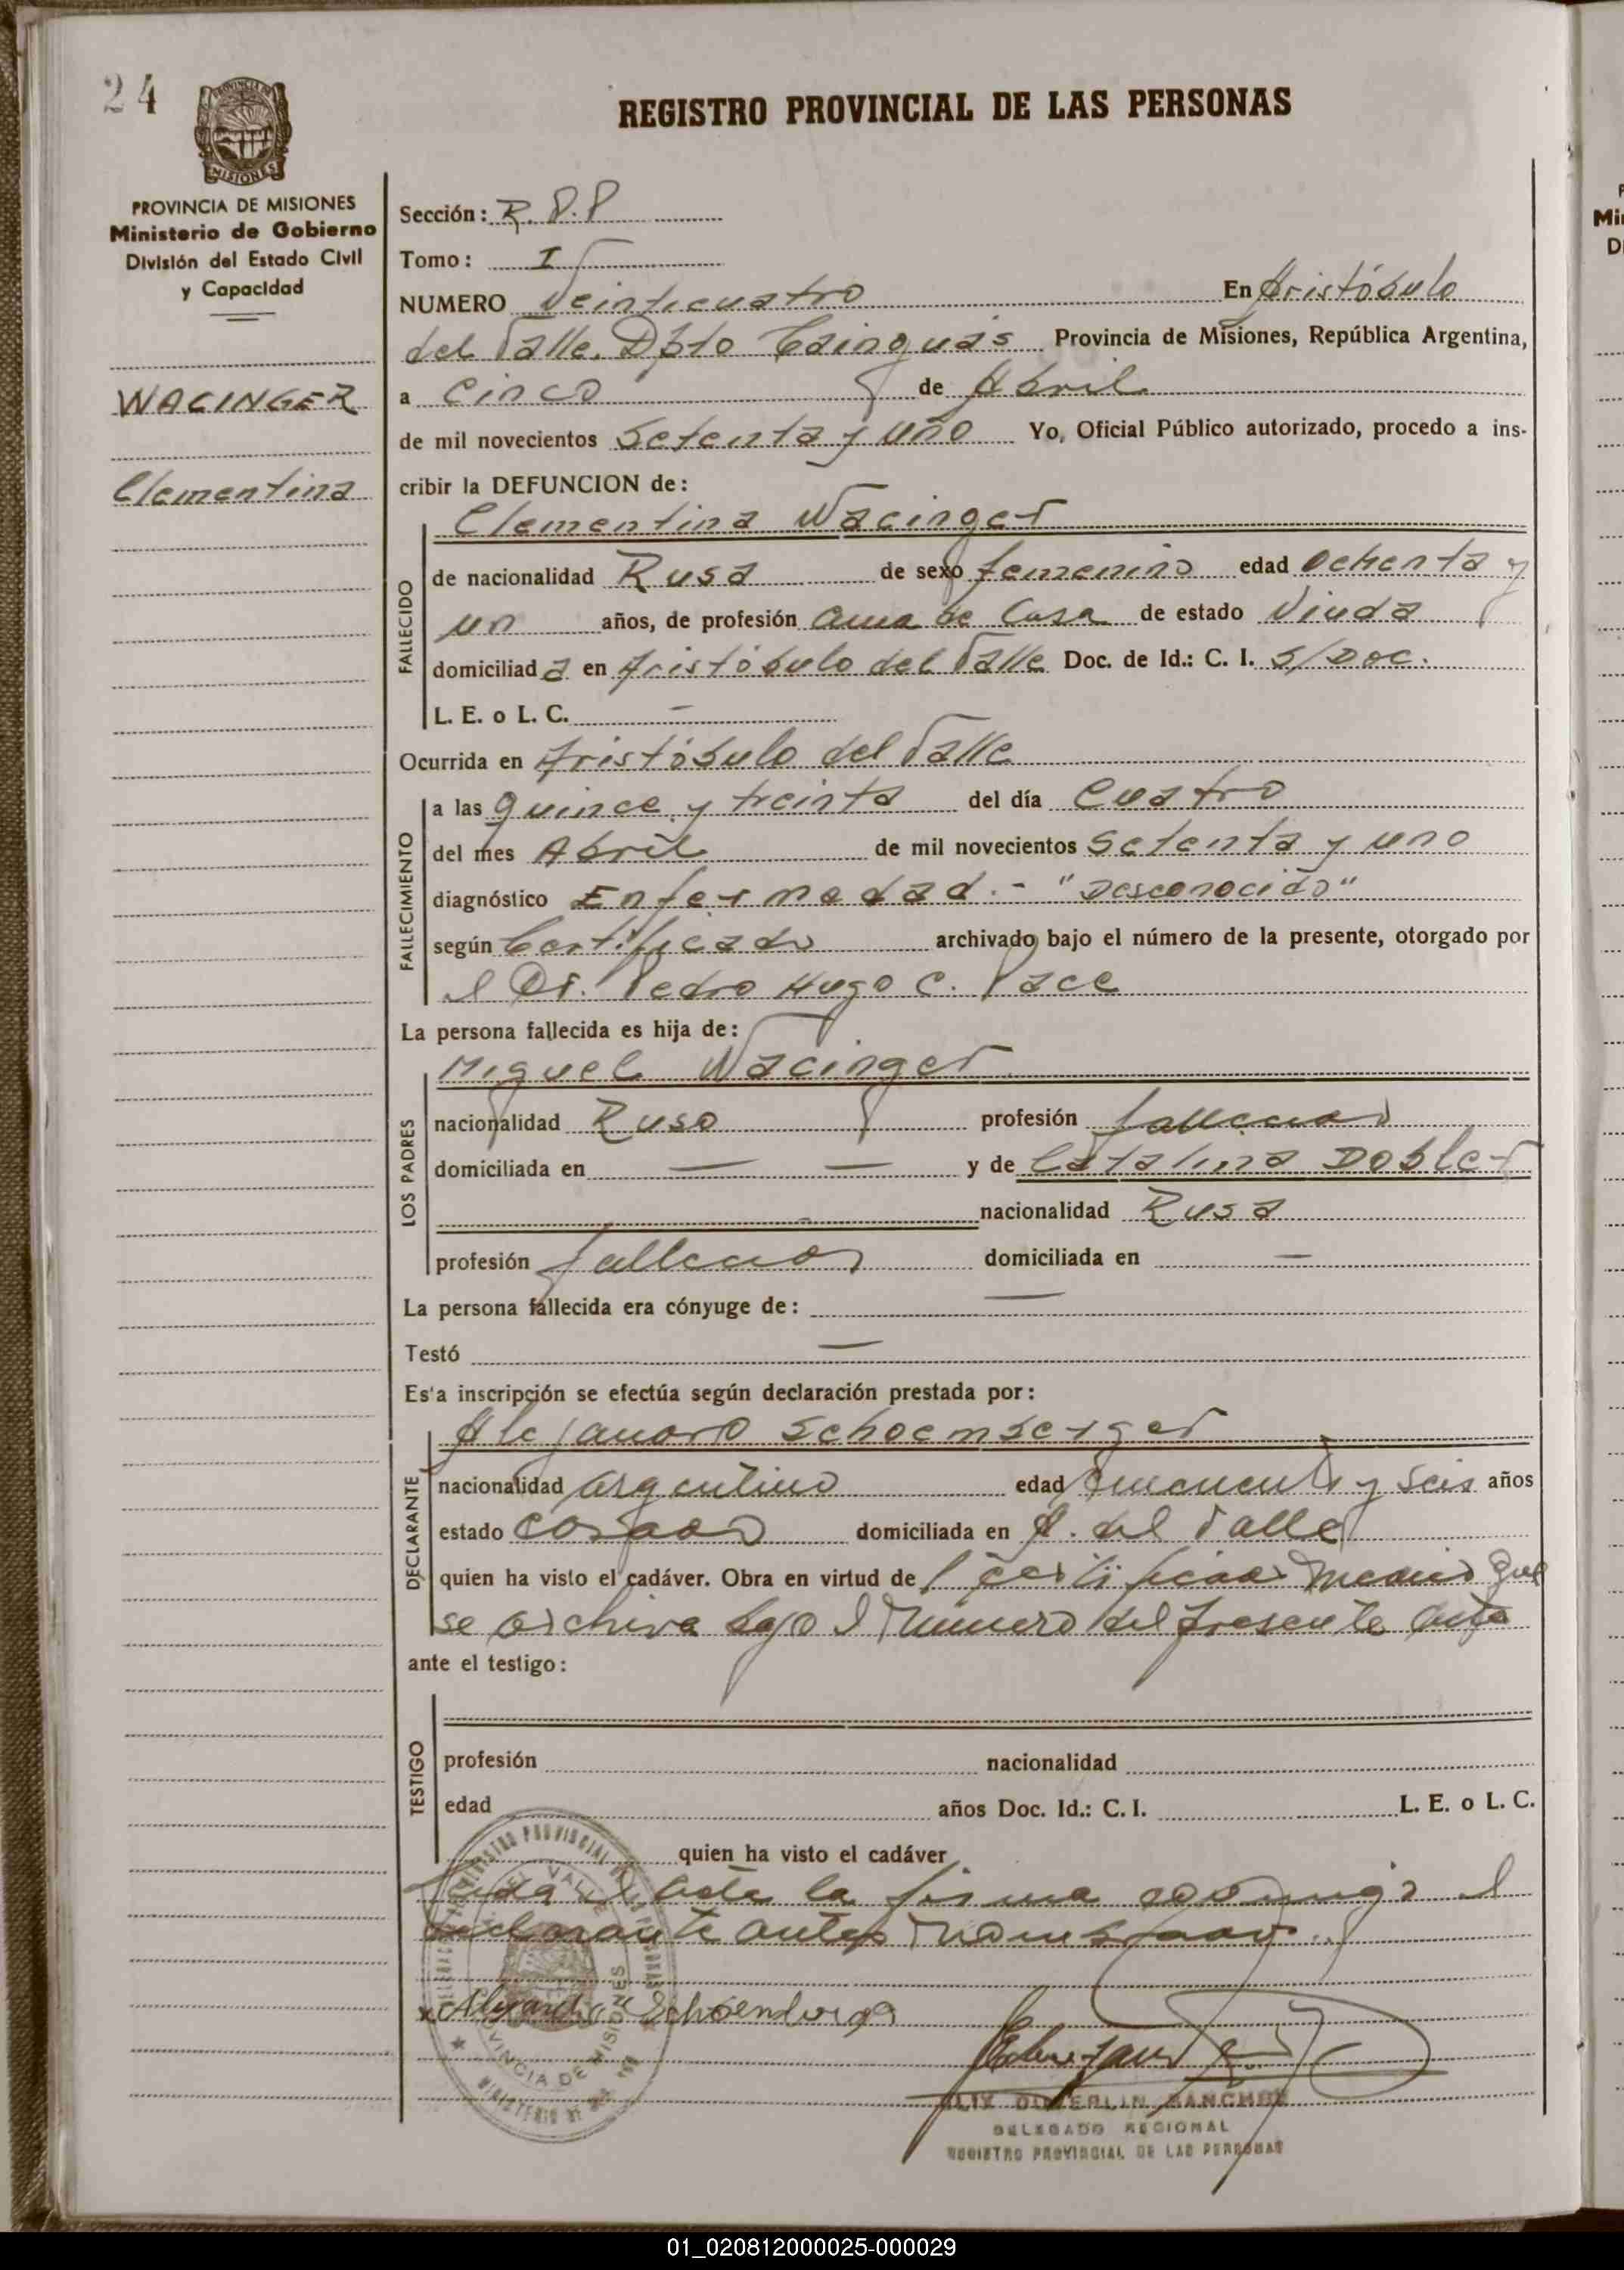 24
REGISTRO PROVINCIAL DE LAS PERSONAS
PROVINCIA DE MISIONES
Ministerio de Gobierno
División del Estado Civil
y Capacidad
WACINGER
Clementina
Sección: R.P.P
Tomo: I
NUMERO Veinticuatro En Aristóbulo
del Valle. Dpto Cainguás Provincia de Misiones, República Argentina,
a Cinco de Abril
de mil novecientos Setenta y uno Yo, Oficial Público autorizado, procedo a ins-
cribir la DEFUNCION de:
Clementina Wacinger
FALLECIDO
de nacionalidad Rusa de sexo femenino edad Ochenta y
un años, de profesión ama de Casa de estado Viuda
domiciliad a en Aristóbulo del Valle Doc. de Id.: C. I. S/Doc.
L. E. o L. C. —
Ocurrida en Aristóbulo del Valle
FALLECIMIENTO
a las quince y treinta del día Cuatro
del mes Abril de mil novecientos Setenta y uno
diagnóstico Enfermedad.- "Desconocido"
según Certificado archivado bajo el número de la presente, otorgado por
el Dr. Pedro Hugo C. Pace
La persona fallecida es hija de:
Miguel Wacinger
LOS PADRES
nacionalidad Ruso profesión fallecido
domiciliada en — — y de Catalina Dobler
nacionalidad Rusa
profesión fallecida domiciliada en —
La persona fallecida era cónyuge de: —
Testó —
Es'a inscripción se efectúa según declaración prestada por:
Alejandro Schoemberger
DECLARANTE
nacionalidad argentino edad Cincuenta y Seis años
estado Casado domiciliada en A. del Valle
quien ha visto el cadáver. Obra en virtud de l certificado medico que
se archiva bajo el Número del presente acta
ante el testigo:
TESTIGO
profesión nacionalidad
edad años Doc. Id.: C. I. L. E. o L. C.
quien ha visto el cadáver
Leida el acta la firma conmigo el
declarante antes nombrado.
x Alejandro Schoemberge
SANCHEZ
DELEGADO REGIONAL
REGISTRO PROVINCIAL DE LAS PERSONAS
REGISTRO PROVINCIAL DE LAS PERSONAS
DEL VALLE
PROVINCIA DE MISIONES
MINISTERIO DE
01_020812000025-000029